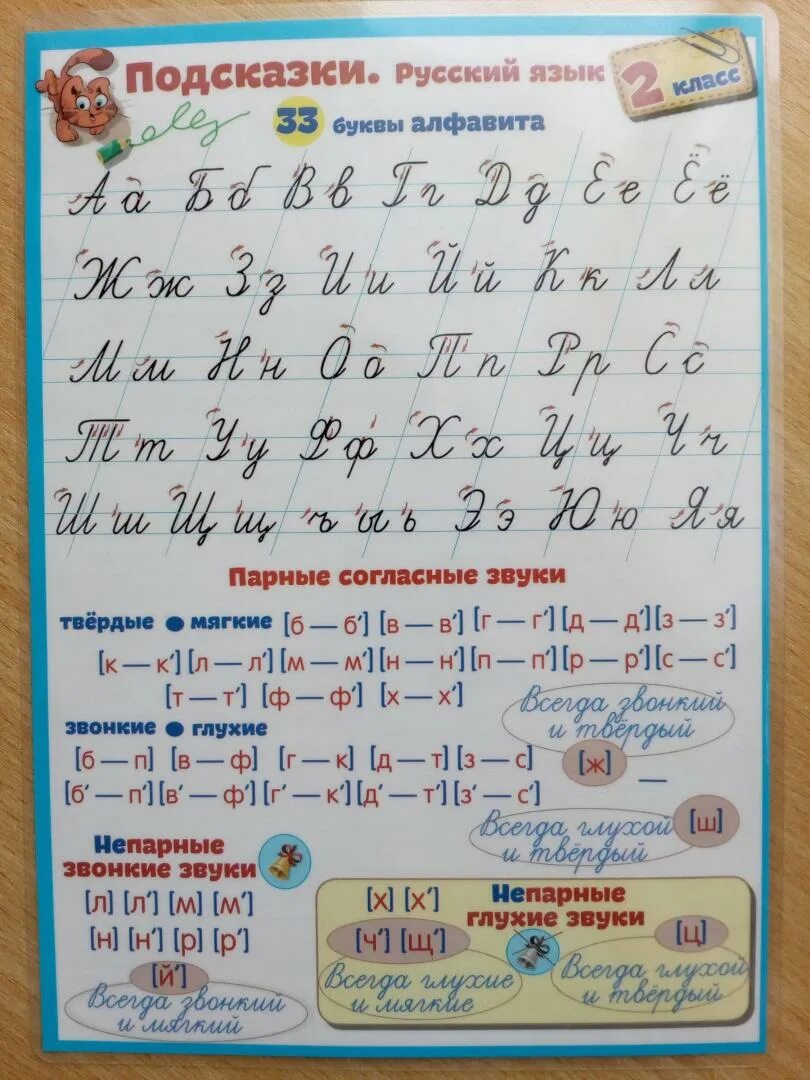 Подсказки. Русский язык 2 класс
33 буквы алфавита
Аа Бб Вв Гг Дд Ее Ёё
Жж Зз Ии Йй Кк Лл
Мм Нн Оо Пп Рр Сс
Тт Уу Фф Хх Цц Чч
Шш Щщ ъ ы ь Ээ Юю Яя
Парные согласные звуки
твёрдые ● мягкие [б — б′] [в — в′] [г — г′] [д — д′] [з — з′]
[к — к′] [л — л′] [м — м′] [н — н′] [п — п′] [р — р′] [с — с′]
[т — т′] [ф — ф′] [х — х′]
звонкие ● глухие
[б — п] [в — ф] [г — к] [д — т] [з — с]
[б′ — п′] [в′ — ф′] [г′ — к′] [д′ — т′] [з′ — с′]
Всегда звонкий
и твёрдый
[ж] —
Всегда глухой [ш]
и твёрдый
Непарные
звонкие звуки
[л] [л′] [м] [м′]
[н] [н′] [р] [р′]
[й′]
Всегда звонкий
и мягкий
Непарные
глухие звуки
[х] [х′]
[ч′] [щ′]
Всегда глухие
и мягкие
[ц]
Всегда глухой
и твёрдый